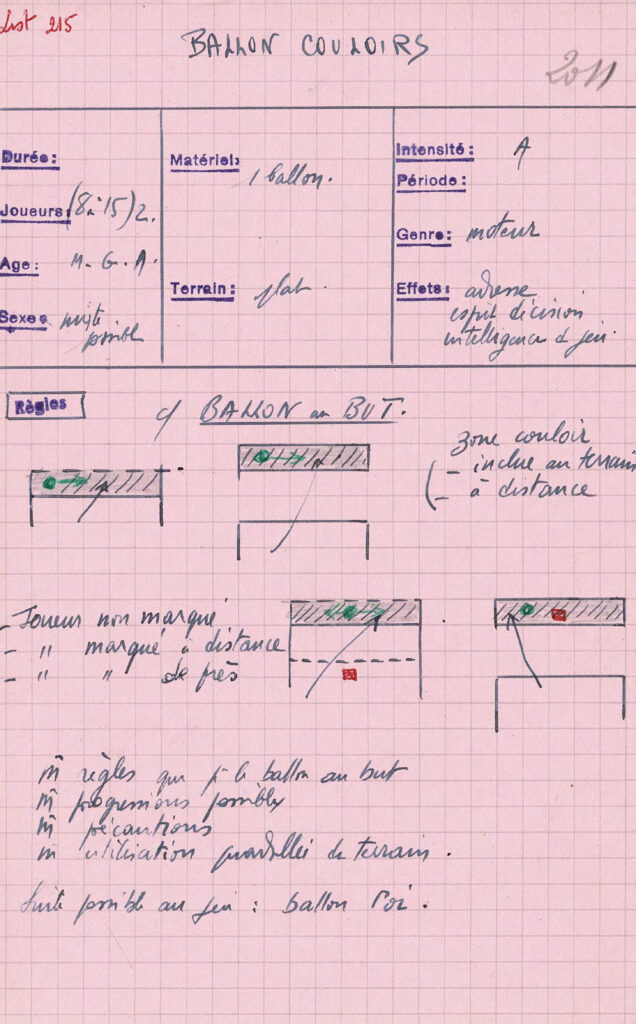 List 215
BALLON COULOIRS
2011
Durée:
Joueurs: (8 à 15) 2.
Age: M. G. A.
Sexe: mixte
possible
Matériel:
1 ballon.
Terrain: plat.
Intensité: A
Période:
Genre: moteur
Effets: adresse
esprit décision
intelligence d jeu.
Règles
c/ BALLON au BUT.
zone couloir
- inclue au terrain
- à distance
- Joueur non marqué
- " marqué à distance
- " " de près
m̄ règles que p. le ballon au but
m̄ progressions possibles
m̄ précautions
m̄ utilisation du terrain.
Suite possible au jeu : ballon roi.